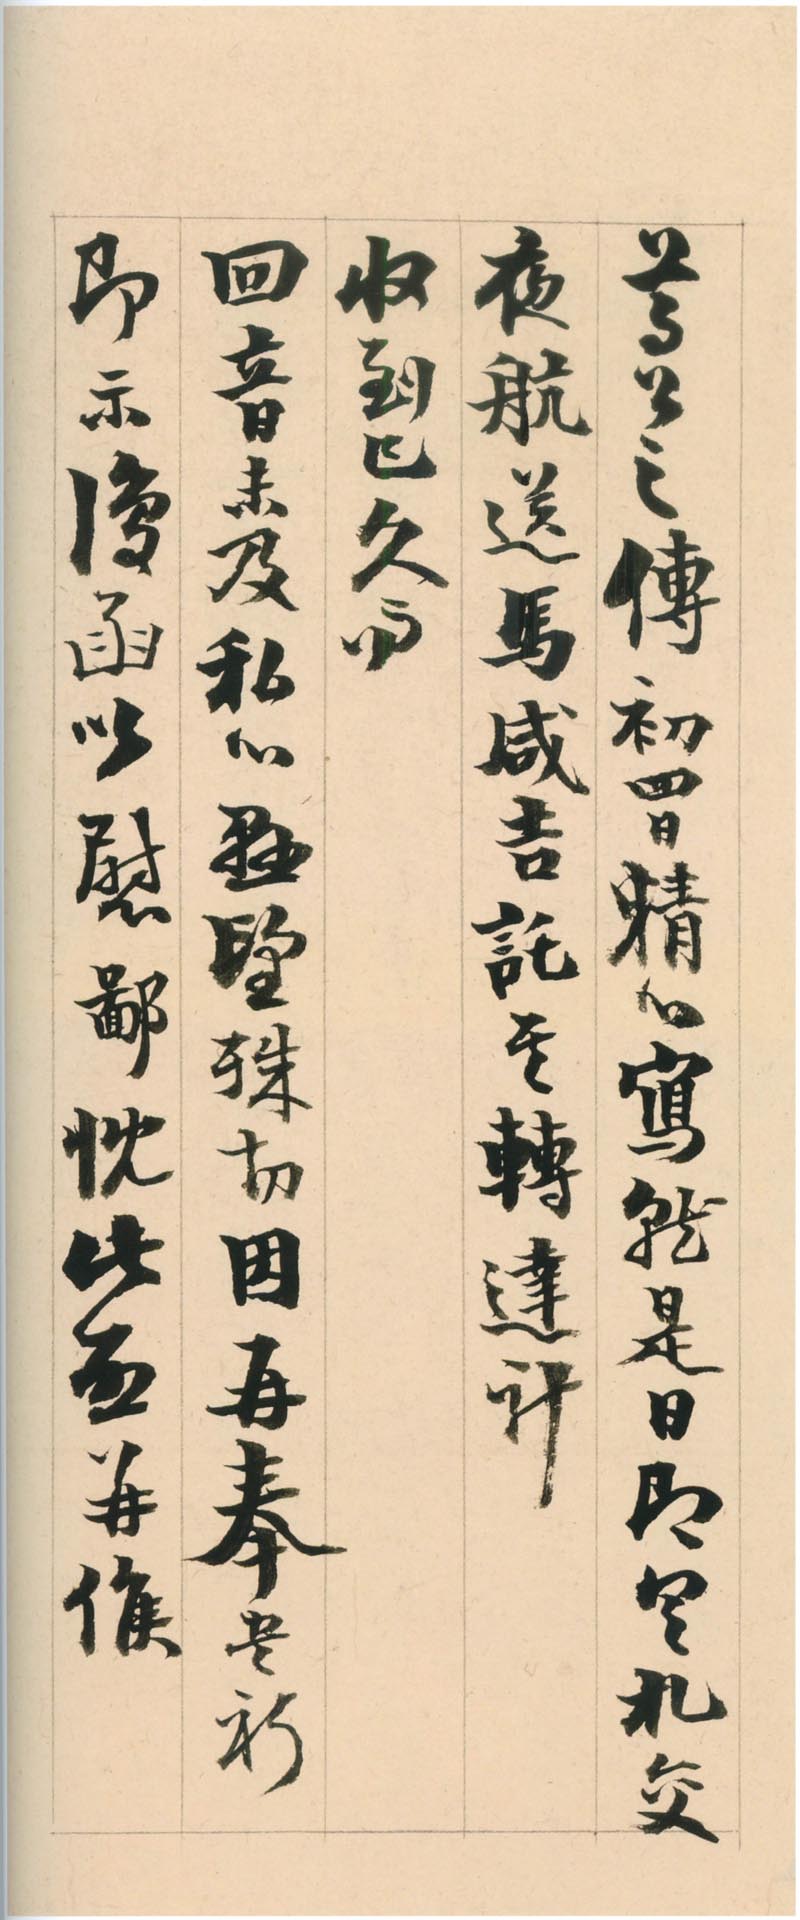 尊公之傳初四日精心寫就是日即具札交
夜航送馬咸吉託其轉達計
收到已久而
回音未及私心懸望殊切因再奉共祈
即示復函以慰鄙忱此並並候